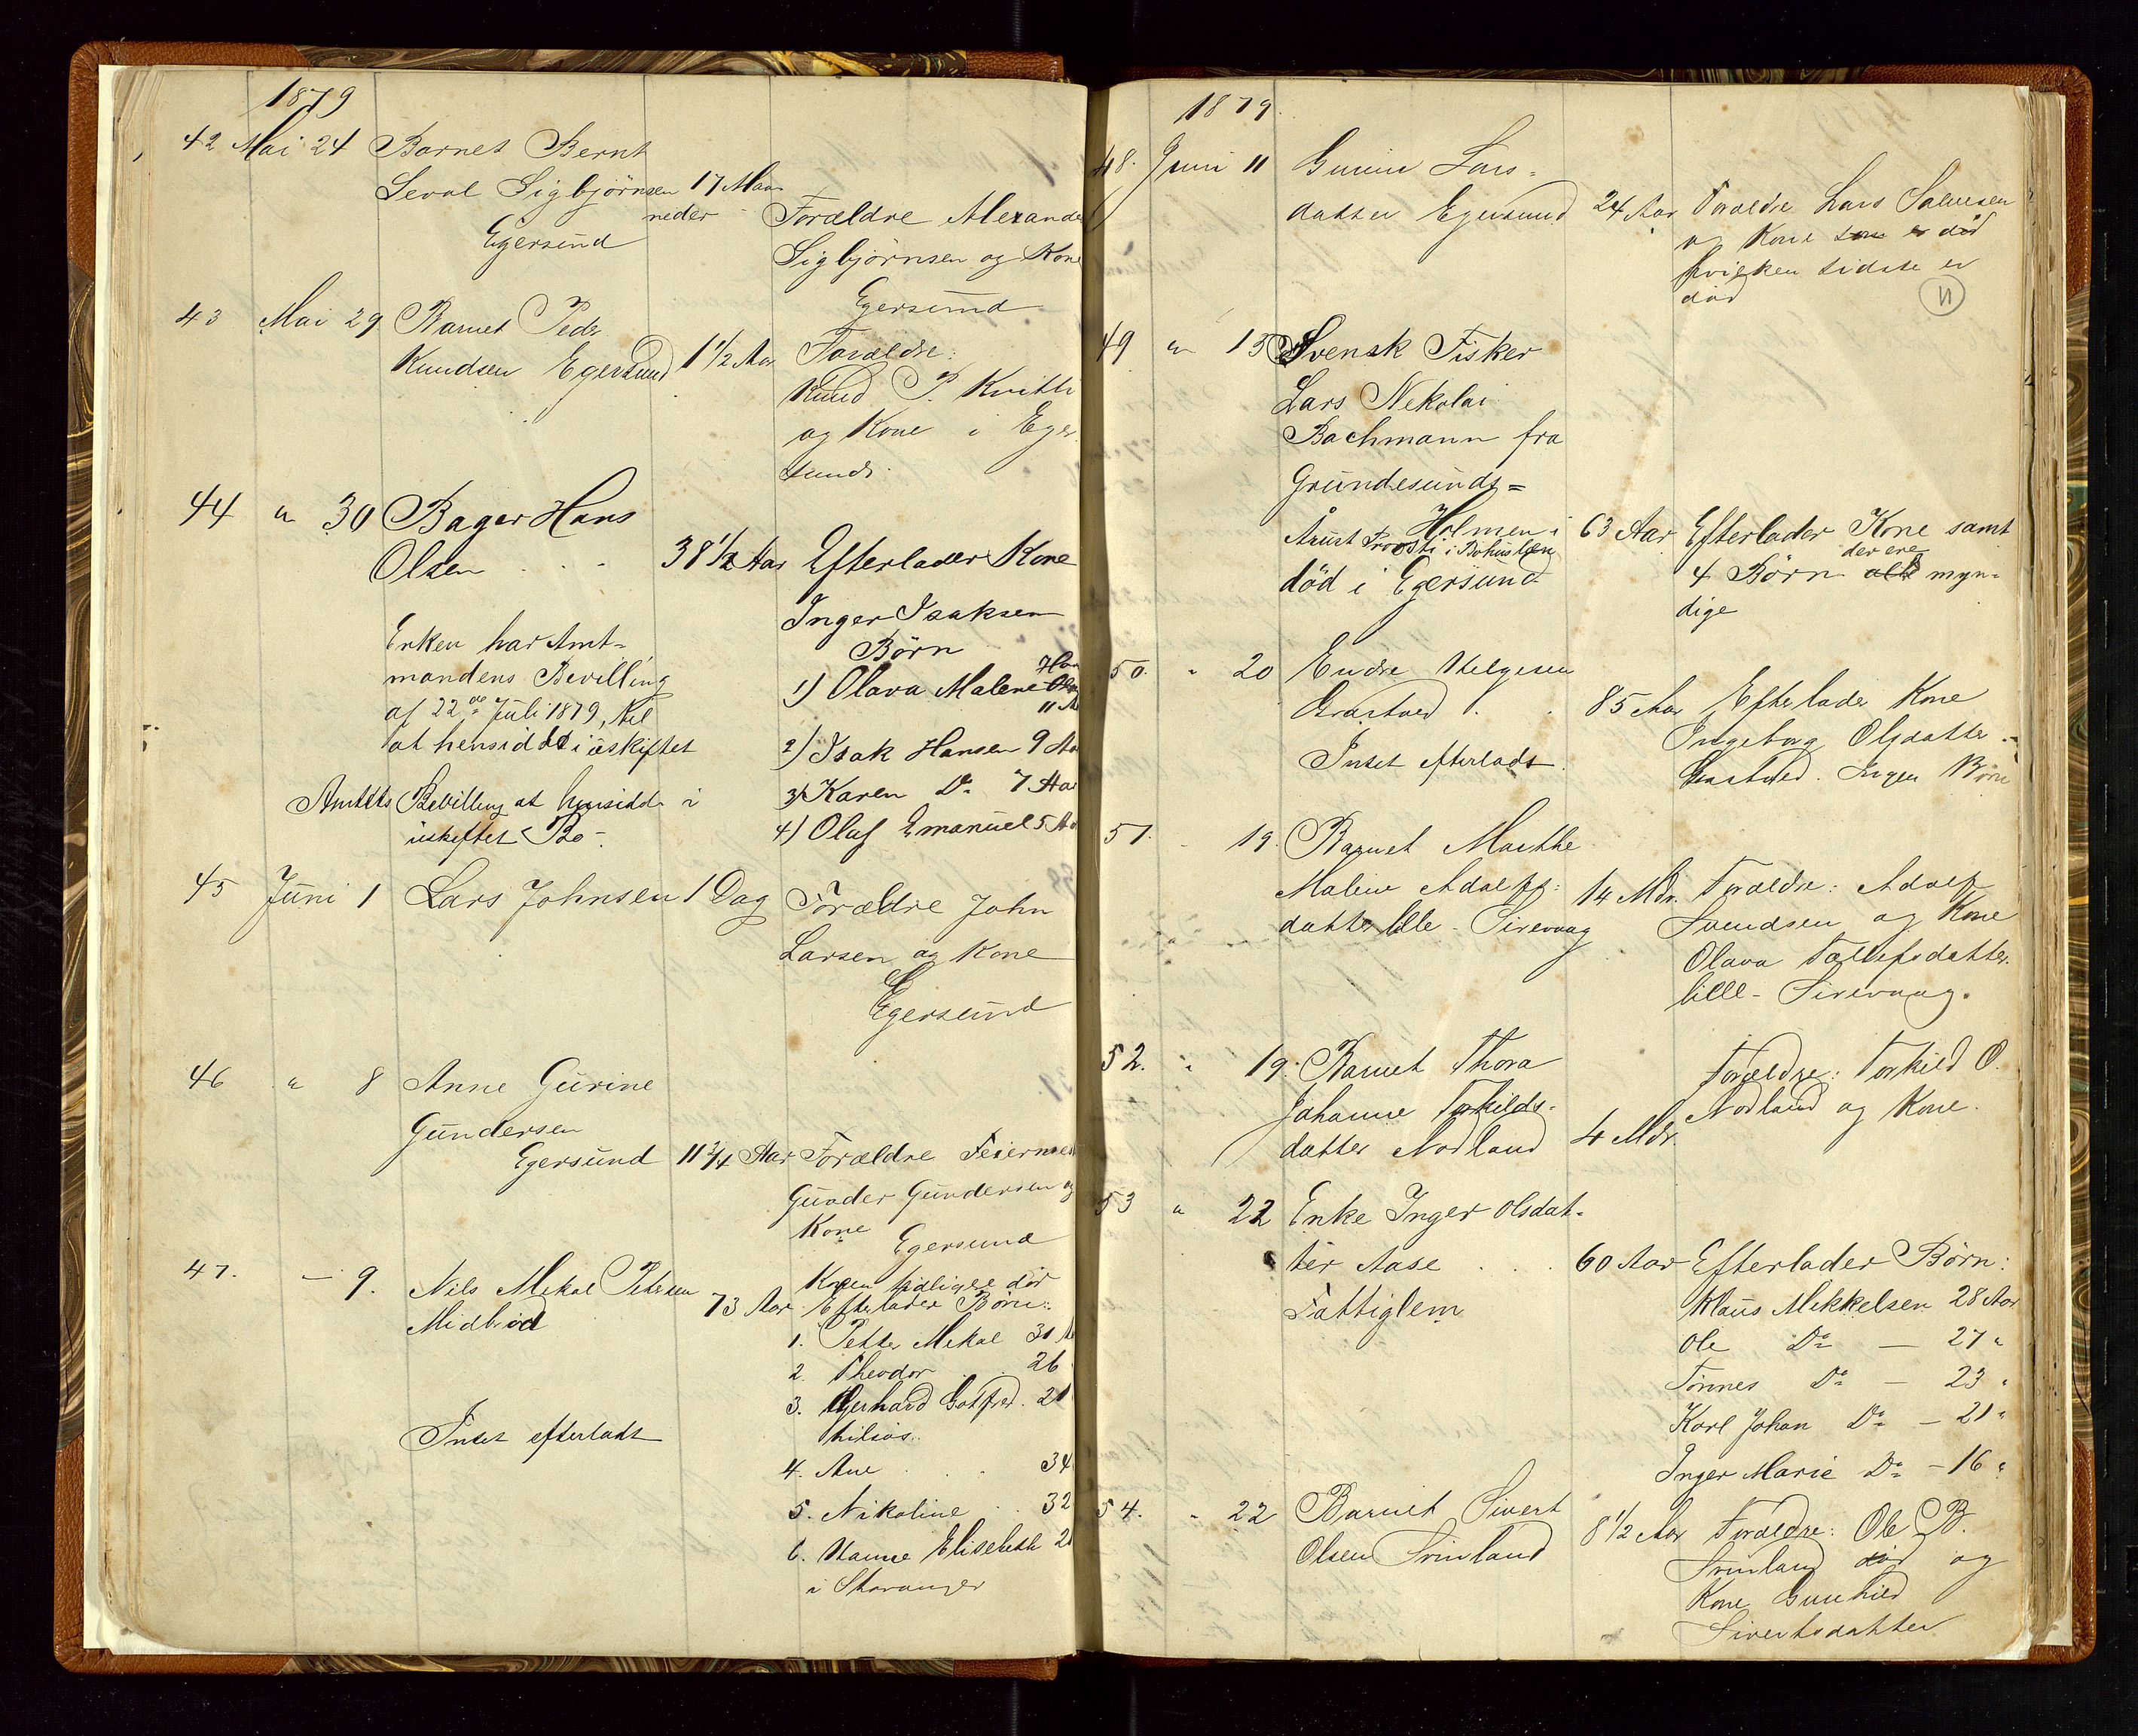 1879
42 Mai 24 Barnet Bernt
Seval Sigbjörnsen 17 Maa-
neder Forældre Alexander
Egersund
Sigbjörnsen og Kone
Egersund
43 Mai 29 Barnet Peder
Knudsen Egersund 1 1/2 Aar Forældre:
Knud P. Kvitti
og Kone i Eger-
sund.
44 " 30 Bager Hans
Olsen 38 1/2 Aar Efterlader Kone
Inger Isaksen
Börn
Enken har Amt-
mandens Bevilling
af 22de Juli 1879, til
at hensidde i uskiftet
1) Olava Malene
11 A
2) Isak Hansen 9 Aa
3) Karen Do 7 Aar
4) Oluf Emanuel 5 Aa
Amtets Bevilling at hensidde i
uskiftet Bo.
45 Juni 1 Lars Johnsen 1 Dag Forældre John
Larsen og Kone
Egersund
46 " 8 Anne Gurine
Gundersen
Egersund 11 3/4 Aar Forældre Feiermest
Gunder Gundersen og
Kone Egersund
47. — 9. Nils Mikal Petersen
Midbröd 73 Aar
Konen tidligere död
Efterlader Börn:
1. Petter Mikal
2. Theodor 26
3. Gerhard Gotfred. 21
4. Ane 34
5. Nikoline 32
6. Hanne Elisebeth
i Stavanger
Intet efterladt
1879.
48. Juni 11 Gunine Lars-
datter Egersund 24 Aar Forældre Lars Salvesen
og Kone som er död
hvilken sidste er
död
11
49 " 13 Svensk Fisker
Lars Nekolai
Bachmann fra
Grundesunds=
Holmen i
Arust Provsti i Bohuslen
död i Egersund
63 Aar Efterlader Kone samt
der ere
4 Börn alle myn-
dige
50. " 20 Endre Helgesen
Grastved 85 Aar Efterlader Kone
Ingeborg Olsdatter
Grastved. Ingen Börn
Intet efterladt.
51. - 19. Barnet Marthe
Maline Adolfs-
datter lille-Sirevaag 14 Mdr. Forældre: Adolf
Svendsen og Kone
Olava Tollefsdatter
lille-Sirevaag.
52. " 19. Barnet Thora
Johanne Torkilds-
datter Nodland 4 Mdr.
Forældre: Torkild O.
Nodland og Kone.
53 " 22 Enke Inger Olsdat-
ter Aase 60 Aar Efterlader Börn:
Fattiglem
Klaus Mikkelsen 28 Aar
Ole Do — 27 "
Tönnes Do — 23 "
Karl Johan Do — 21 "
Inger Marie Do — 16 "
54. " 22 Barnet Sivert
Olsen Svinland 8 1/2 Aar Forældre: Ole B.
Svinland död og
Kone Gunhild
Sivertsdatter